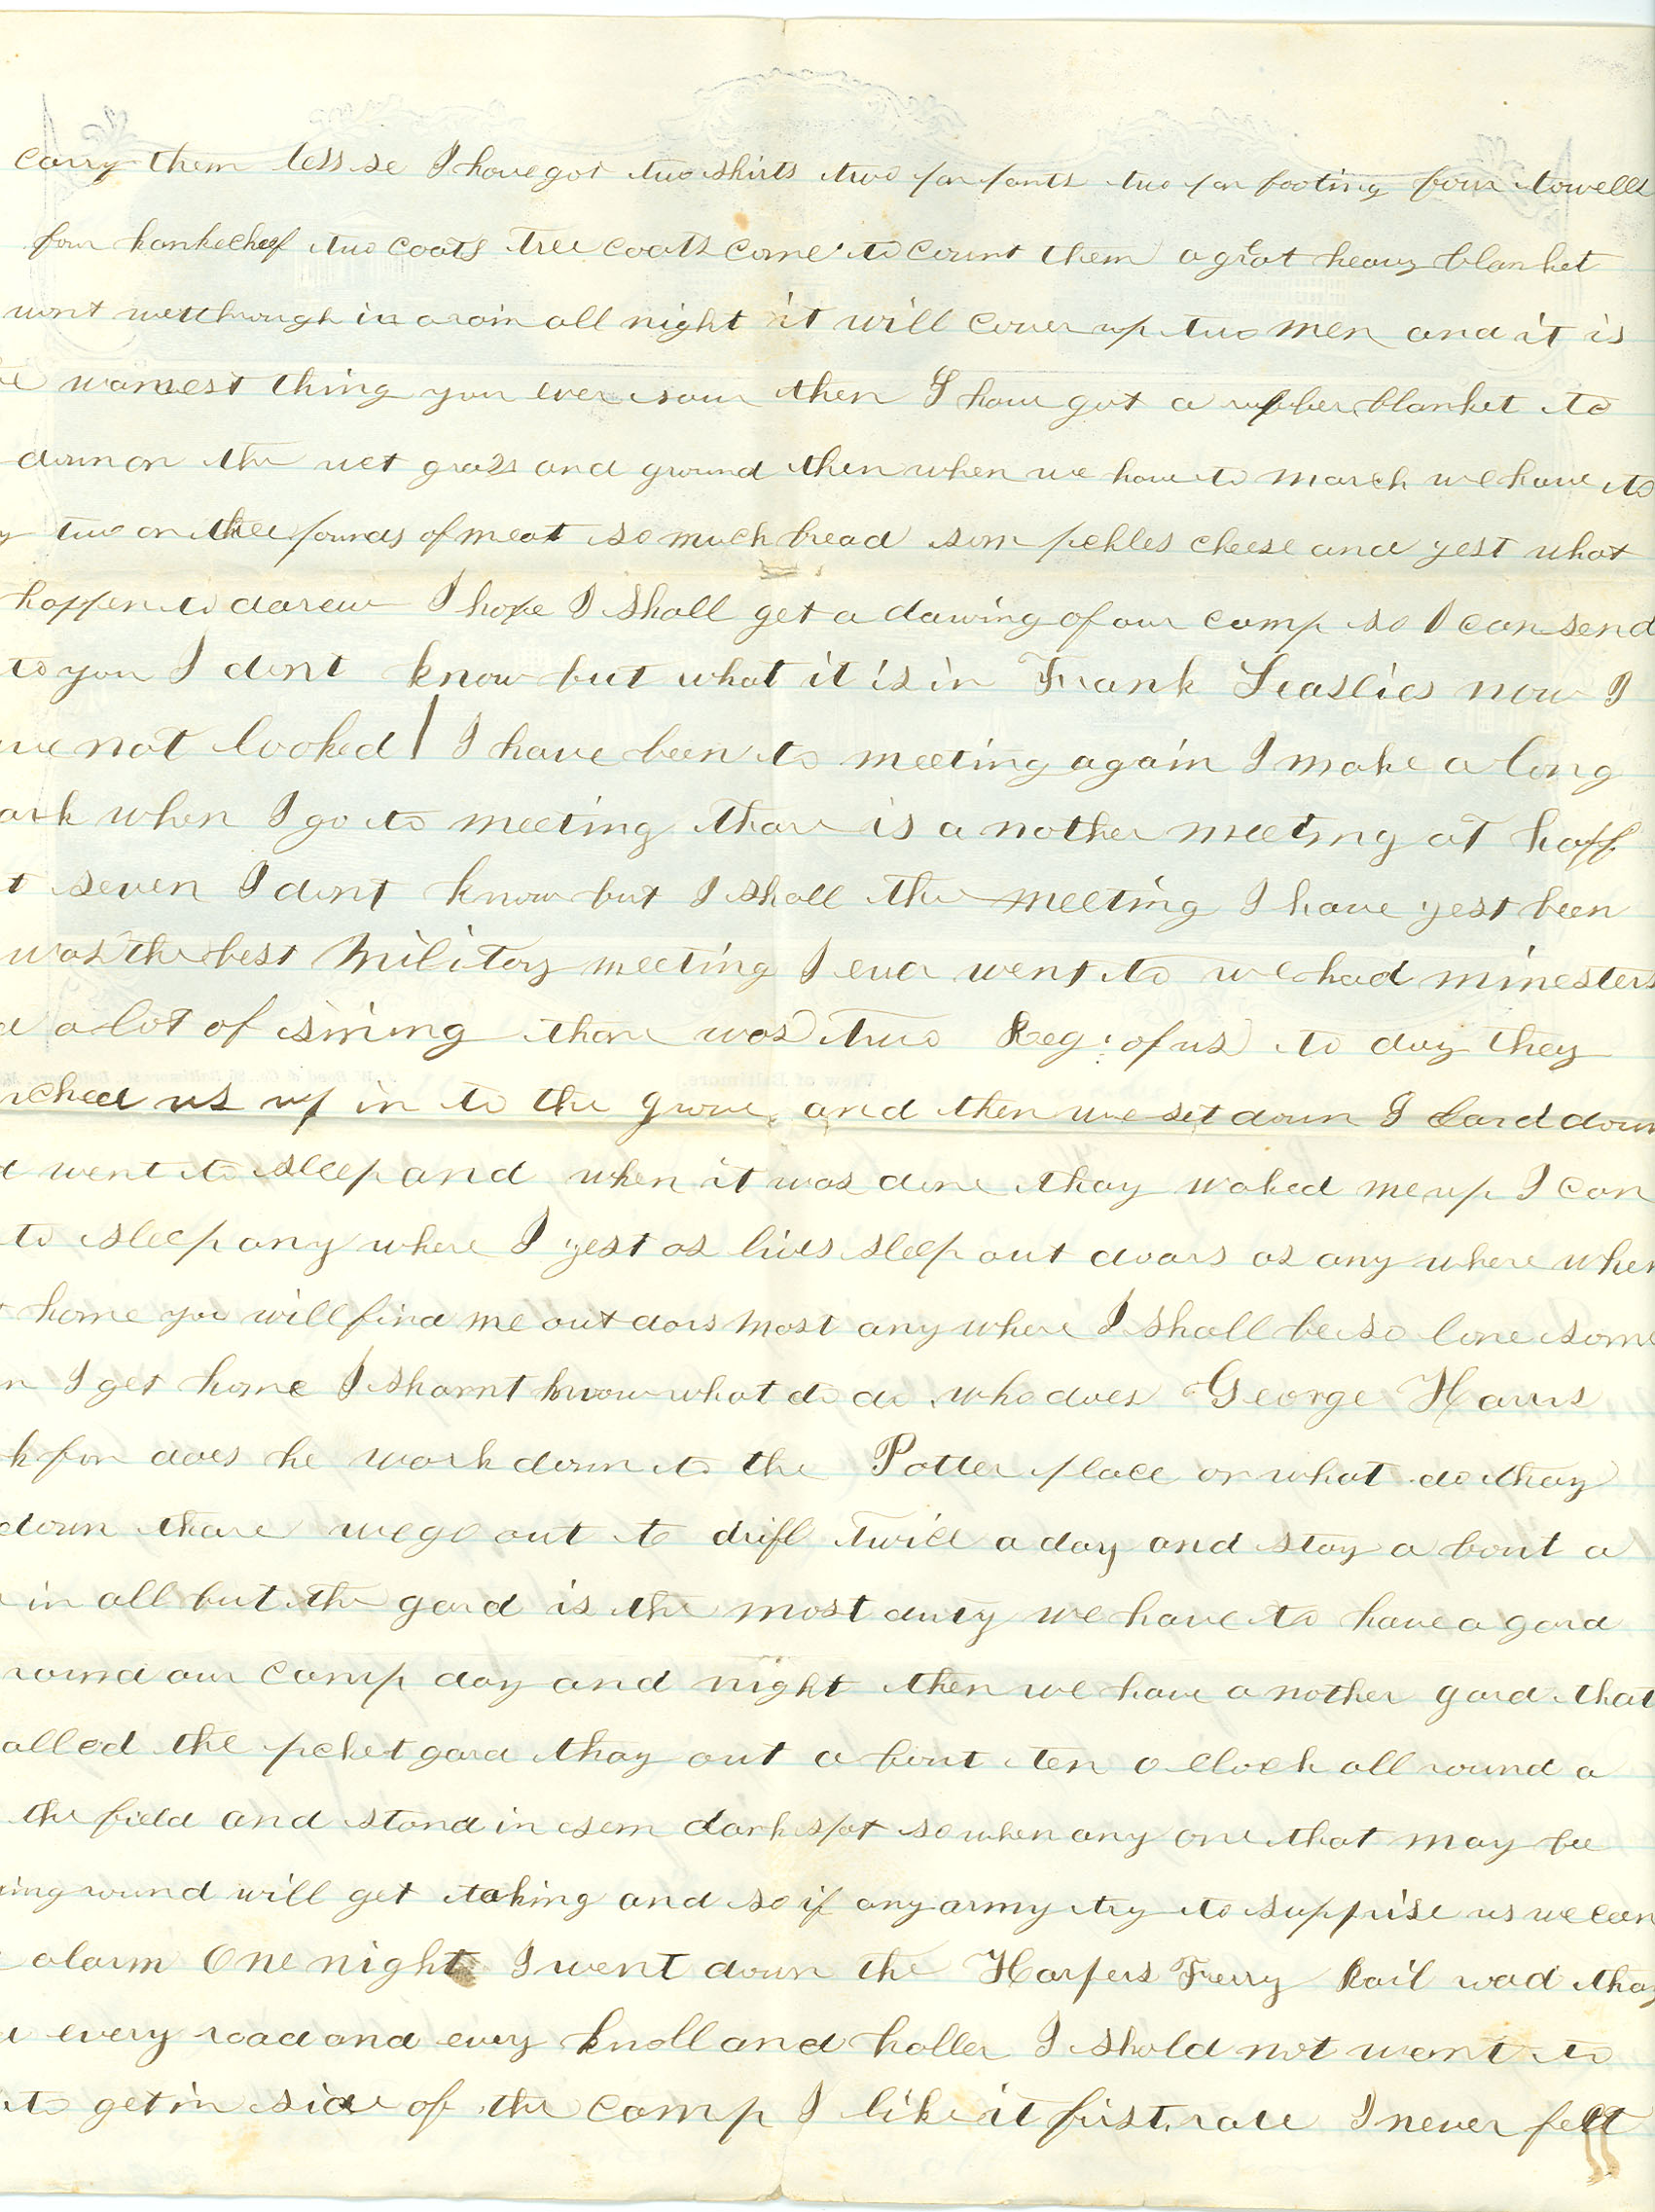 carry them less se I have got two shirts two par pants two par footing four towells
four hankecheef two coats tree coats come to count them a grat heavy blanket
wont wett through in a rain all night it will cover up two men and it is
warmest thing you ever saw then I have got a rubber blanket to
down on the wet grass and ground then when we have to march we have to
two or three pounds of meat so much bread som pekles cheese and yest what
happen to darew I hope I shall get a dawing of our camp so I can send
to you I dont know but what it is in Frank Leaslies now I
not looked | I have been to meeting again I make a long
ark when I go to meeting thare is a nother meeting at haff
t seven I dont know but I shall the meeting I have yest been
was the best Military meeting I ever went to we had minesters
a lot of sining thare was two Reg: of us to day they
rched us up in to the grove and then we set down I lard down
went to sleep and when it was done thay waked me up I can
to sleep any where I yest as lives sleep out doars as any where when
home you will find me out dors most any where I shall be so lone some
n I get home I sharnt know what to do who does George Harris
k for does he work down to the Potter place or what do thay
down thare we go out to drill twice a day and stay a bout a
in all but the gard is the most duty we have to have a gard
round our camp day and night then we have a nother gard that
alled the peket gard thay out a bout ten o clock all round a
the field and stand in sem dark spot so when any one that may be
ing round will get taking and so if any army try to supprise us we can
alarm One night I went down the Harpers Ferry Rail road thay
every road and evry knoll and holler I shold not want to
to get in side of the camp I like it first rate I never felt
View of Baltimore.